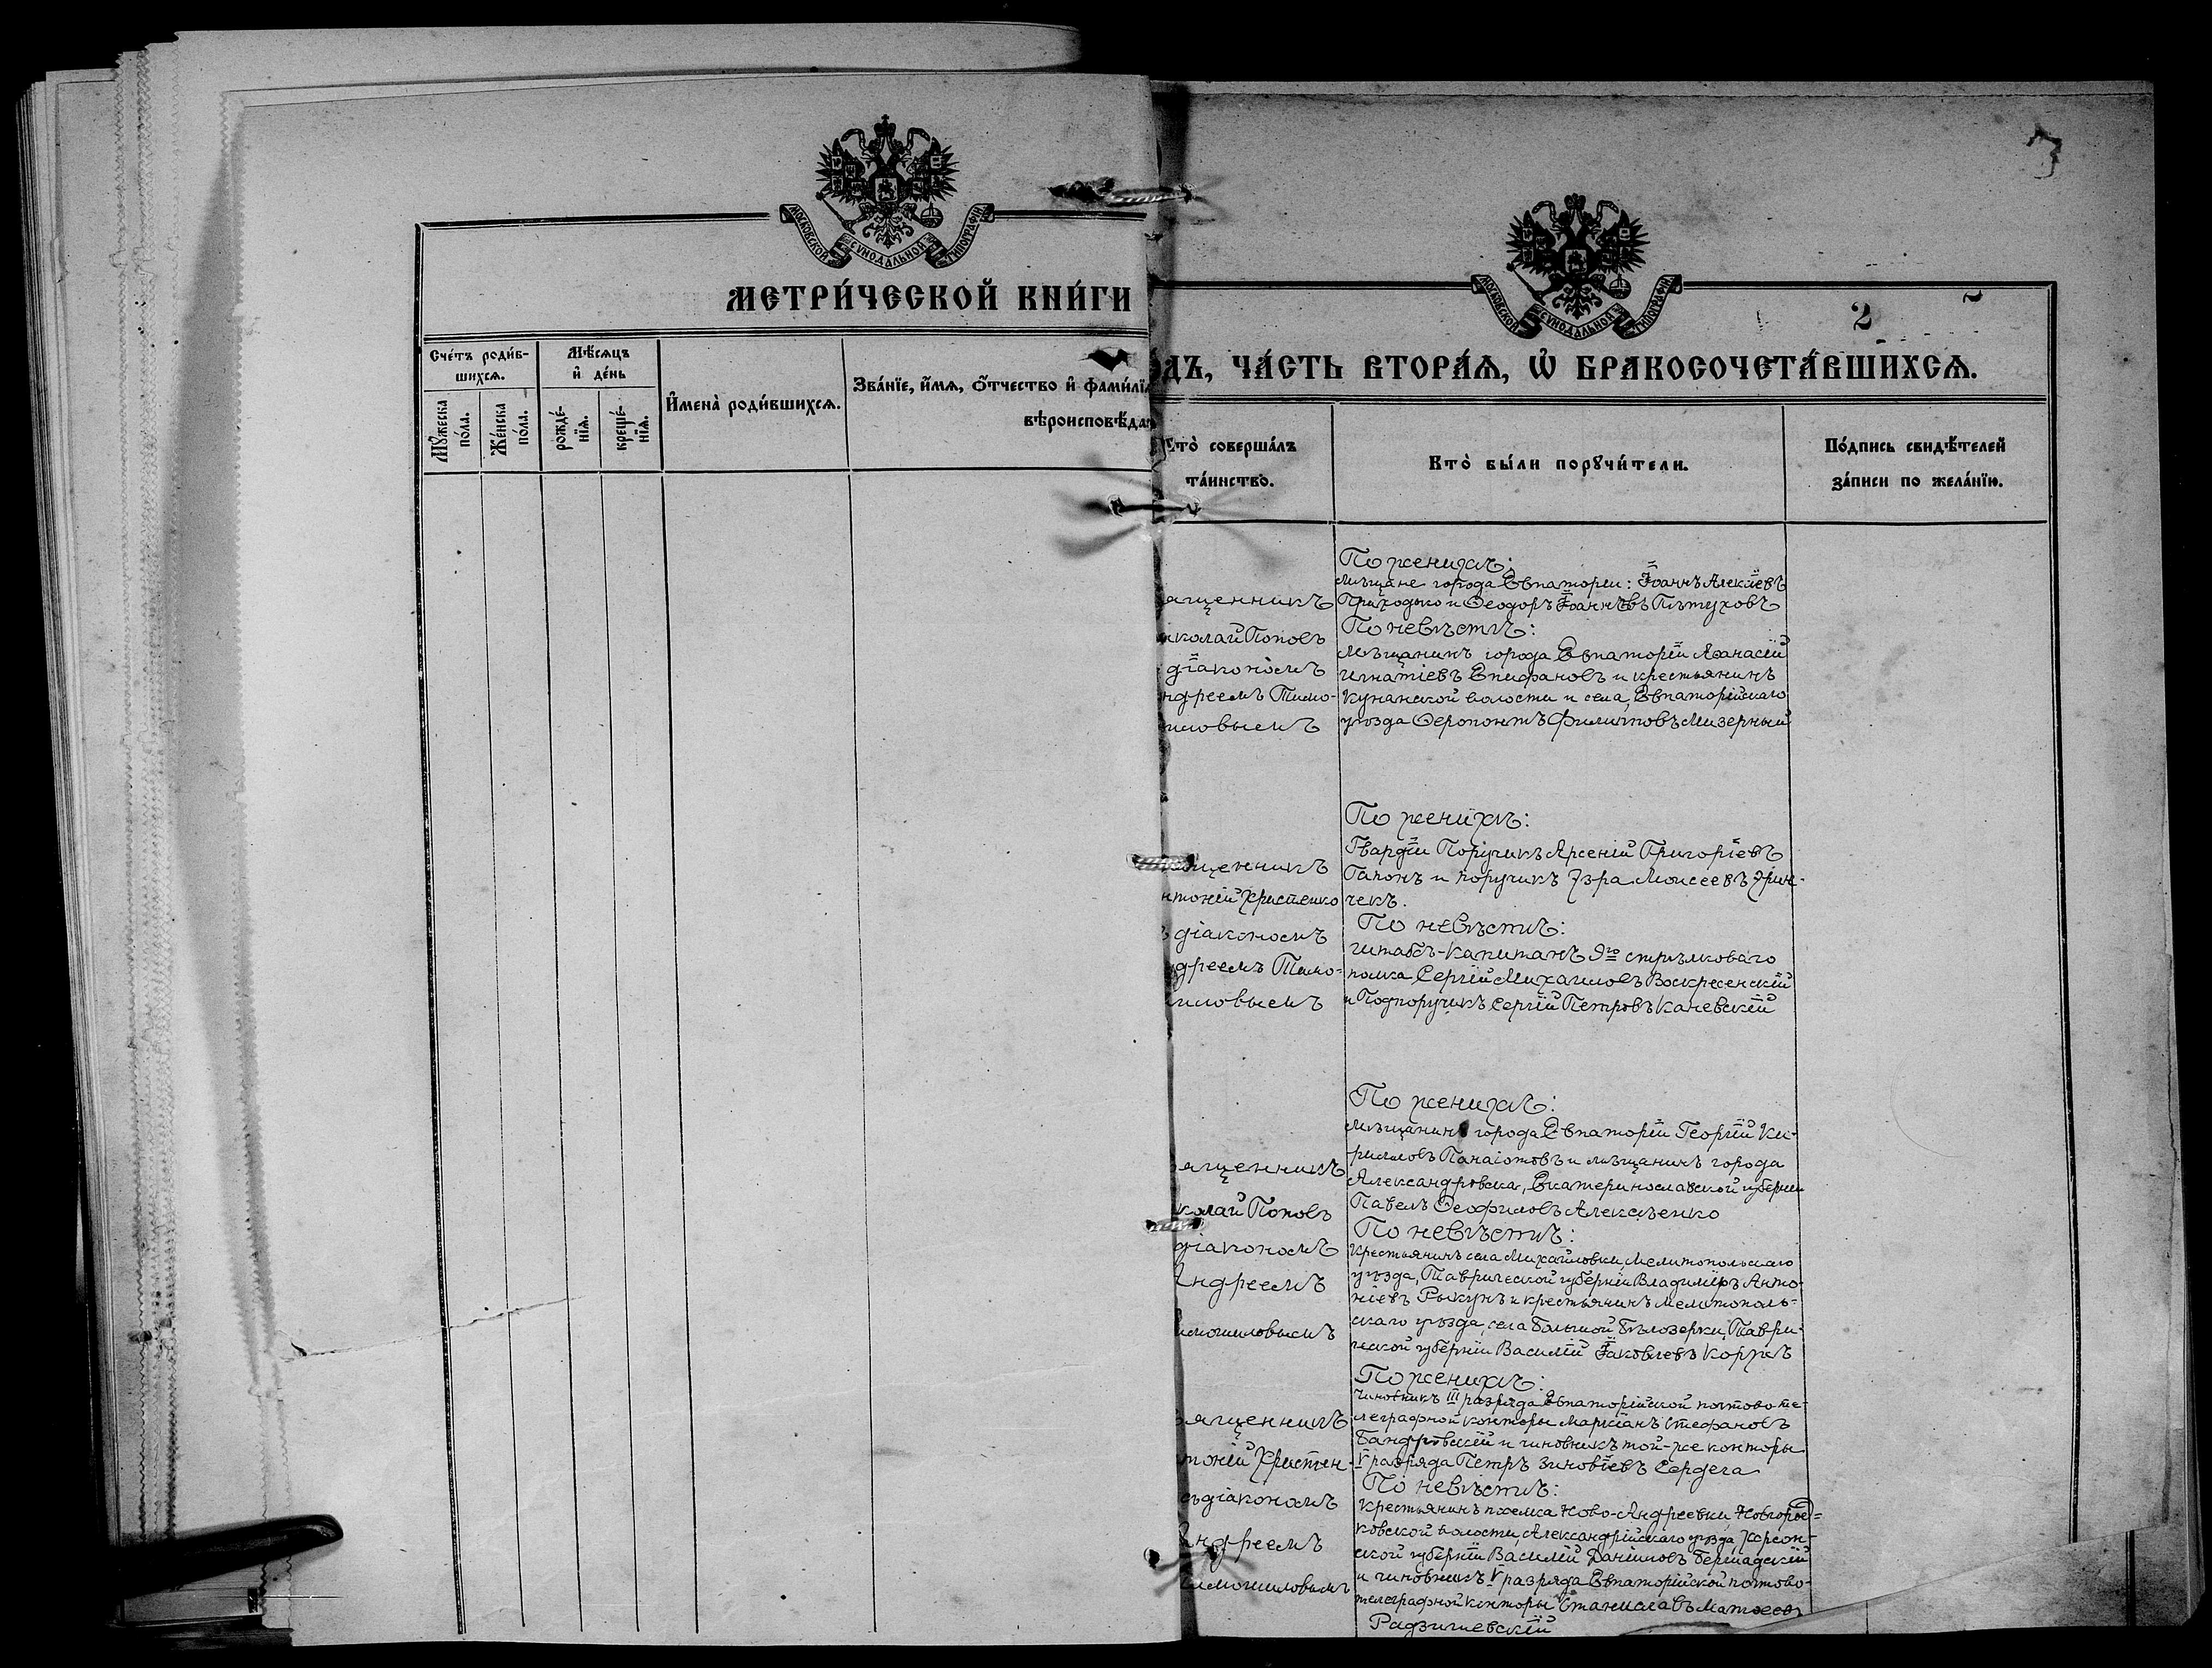 МОСКОВСКОЙ СѴНОДАЛЬНОЙ ТИПОГРАФІИ
МЕТРИ́ЧЕСКОЙ КНИ́ГИ
Сче́тъ роди́в-
шихсѧ.
Мѣ́сѧцъ
и҆ де́нь
Мꙋ́жеска
по́ла.
Же́нска
по́ла.
рожде́-
нїѧ.
креще́-
нїѧ.
И҆мена̀ роди́вшихсѧ.
Зва́нїе, и҆́мѧ, ѻ҆́тчество и҆ фами́лїѧ
вѣроисповѣ́да
МОСКОВСКОЙ СѴНОДАЛЬНОЙ ТИПОГРАФІИ
2
ОДЪ, ЧА́СТЬ ВТОРА́Ѧ, Ѡ҆ БРАКОСОЧЕТА́ВШИХСѦ.
Кто̀ соверша́лъ
та́инство.
Кто̀ бы́ли порꙋчи́тели.
По́дпись свидѣ́телей
за́писи по жела́нїю.
ященникъ
иколай Поповъ
діакономъ
ндреемъ Тимо-
шиловымъ
По женихѣ:
Мѣщане города Евпаторіи: Іоаннъ Алексѣевъ
Приходько и Ѳеодоръ Іоанновъ Пѣтуховъ
По невѣстѣ:
Мѣщанинъ города Евпаторіи Аѳанасій
Игнатіевъ Епифановъ и крестьянинъ
Кунанской волости и села, Евпаторійскаго
уѣзда Ѳеропонтъ Филиповъ Мизерный
ященникъ
нтоній Христенко
діакономъ
ндреемъ Тимо-
шиловымъ
По женихѣ:
Гвардіи Поручикъ Арсеній Григоріевъ
Гапонъ и поручикъ Эзра Моисеевъ Эрин-
чекъ.
По невѣстѣ:
Штабсъ-Капитанъ 9го стрѣлковаго
полка Сергій Михаиловъ Воскресенскій
и Подпоручикъ Сергій Петровъ Каневскій
ященникъ
колай Поповъ
діакономъ
Андреемъ
имошиловымъ
По женихѣ:
Мѣщанинъ города Евпаторіи Георгій Ки-
рилловъ Панаіотовъ и мѣщанинъ города
Александровска, Екатеринославской губерніи
Павелъ Ѳеофиловъ Алексѣенко
По невѣстѣ:
Крестьянинъ села Михайловки, Мелитопольскаго
уѣзда, Таврической губерніи Владиміръ Анто-
ніевъ Рыкунъ и крестьянинъ Мелитополь-
скаго уѣзда, села Большой Бѣлозерки, Таври-
ческой губерніи Василій Іаковлевъ Коржъ
ященникъ
тоній Христен-
съ діакономъ
Андреемъ
имошиловымъ
По женихѣ:
Чиновникъ III разряда Евпаторійской почтово-те-
леграфной конторы Маркіанъ Стефановъ
Бандровскій и чиновникъ той-же конторы
V разряда Петръ Зиновіевъ Сердега
По невѣстѣ:
Крестьянинъ поселка Ново-Андреевки, Новгород=
ковской волости, Александрійскаго уѣзда, Херсон-
ской губерніи Василій Даніиловъ Бершадскій
и чиновникъ V разряда Евпаторійской почтово-
телеграфной конторы Станиславъ Матѳеевъ
Радзишевскій